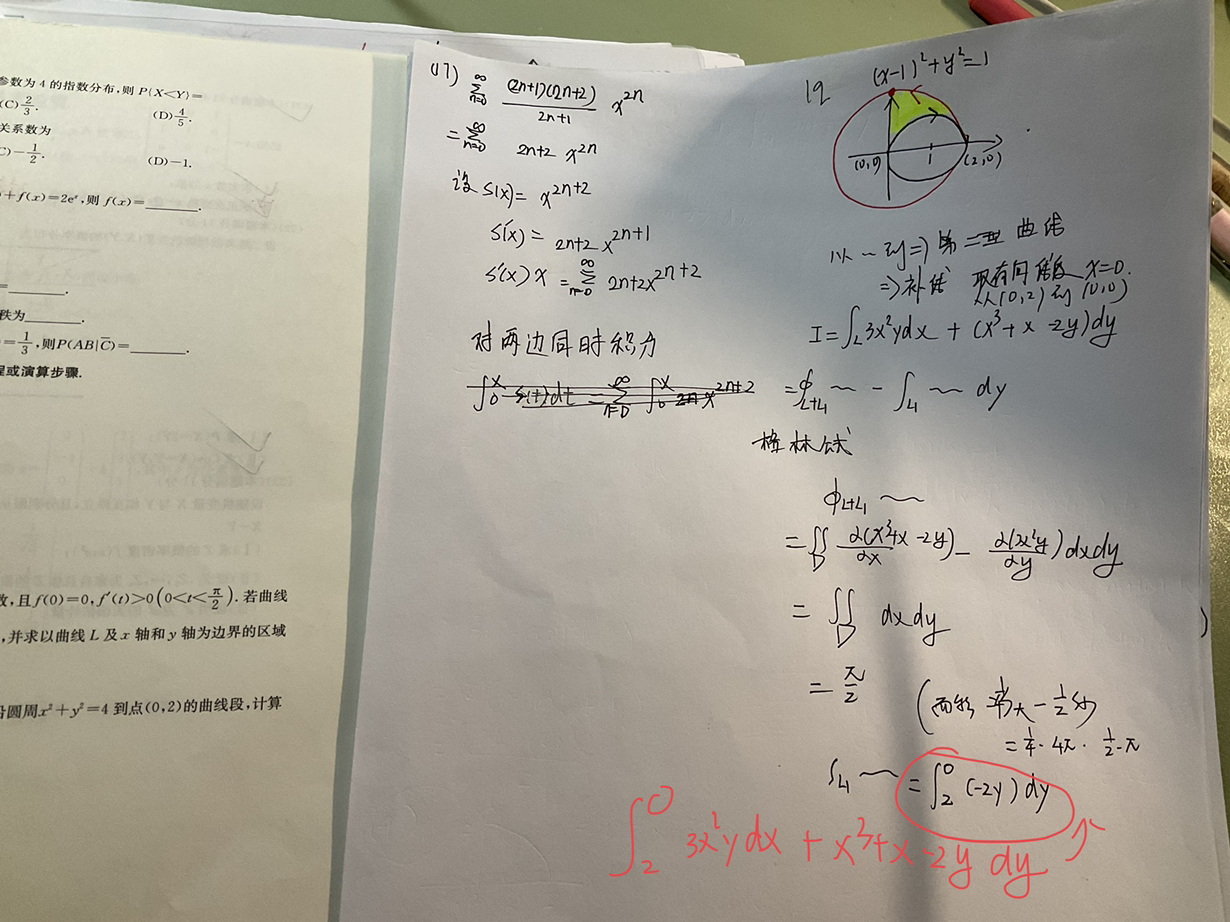 参数为 4 的指数分布,则 P{X<Y}=
(C) 2/3.
(D) 4/5.
关系数为
C) -1/2.
(D) -1.
)+f(x)=2e^x,则 f(x)=______.
=______.
秩为______.
)=1/3,则P(AB|C̄)=______.
程或演算步骤.
数,且f(0)=0,f′(t)>0(0<t<π/2). 若曲线
,并求以曲线 L 及 x 轴和 y 轴为边界的区域
沿圆周x²+y²=4 到点(0,2)的曲线段,计算
(17) ∞∑n=0 (2n+1)(2n+2)/2n+1 x^2n
= ∞∑n=0 2n+2 x^2n
设 S(x)= x^2n+2
S'(x)= 2n+2 x^2n+1
S'(x) x = ∞∑n=0 2n+2 x^2n+2
对两边同时积分
∫0^x S(t)dt = ∞∑n=0 ∫0^x 2n x^2n+2
(x-1)²+y²=1
19
(0,0) 1 (2,0)
⇒ 第二型 曲线
⇒ 补线 取有向线段 x=0.
从(0,2)到(0,0)
I=∫L 3x²ydx + (x³+x-2y)dy
=∮L+L1 ~ - ∫L1 ~ dy
格林公式
∮L+L1 ~
=∬D ∂(x³+x-2y)/∂x - ∂(3x²y/∂y) dxdy
= ∬D dxdy
= π/2
= 1/4·4π·1/2·π
∫L1 ~ = ∫2^0 (-2y) dy
∫2^0 3x²y dx + x³+x-2y dy